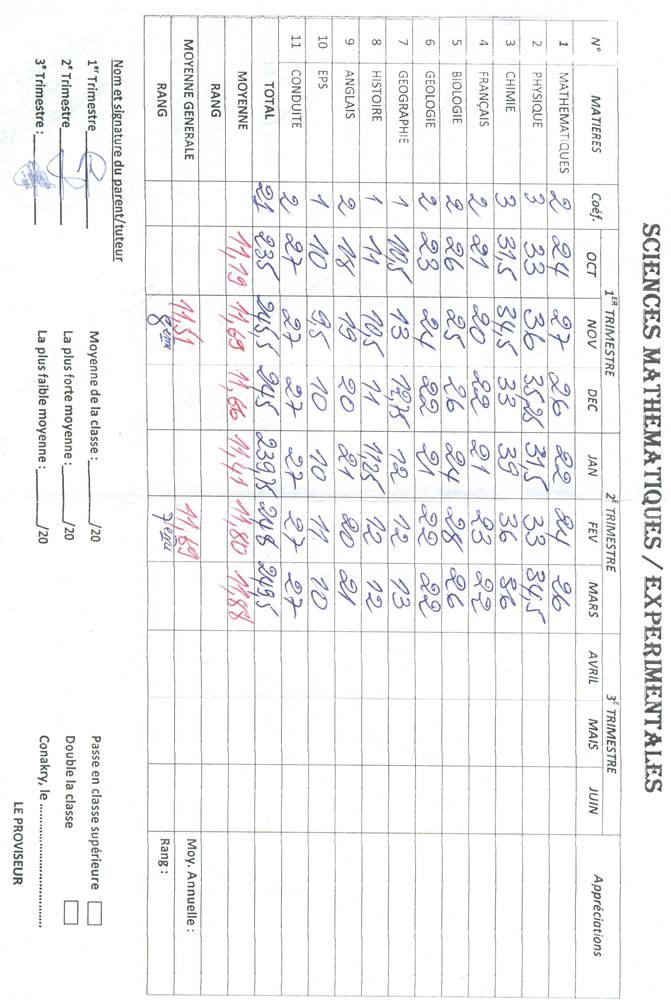 SCIENCES MATHEMATIQUES / EXPERIMENTALES
N° MATIERES Coéf. 1ER TRIMESTRE 2E TRIMESTRE 3E TRIMESTRE Appréciations
OCT NOV DEC JAN FEV MARS AVRIL MAIS JUIN
1 MATHEMATIQUES 2 24 27 26 22 24 26
2 PHYSIQUE 3 33 36 35,25 31,5 33 34,5
3 CHIMIE 3 31,5 34,5 33 39 36 36
4 FRANÇAIS 2 21 20 22 21 23 22
5 BIOLOGIE 2 26 25 26 24 28 26
6 GEOLOGIE 2 23 24 22 21 22 22
7 GEOGRAPHIE 1 10,5 13 12,75 12 12 13
8 HISTOIRE 1 11 10,5 11 11,25 12 12
9 ANGLAIS 2 18 19 20 21 20 21
10 EPS 1 10 9,5 10 10 11 10
11 CONDUITE 2 27 27 27 27 27 27
TOTAL 21 235 245,5 245 239,75 248 249,5
MOYENNE 11,19 11,69 11,66 11,41 11,80 11,88
RANG
MOYENNE GENERALE 11,51 11,69 Moy. Annuelle :
RANG 8eme 7eme Rang :
Nom et signature du parent/tuteur
1er Trimestre Moyenne de la classe : /20 Passe en classe supérieure
2e Trimestre La plus forte moyenne : /20 Double la classe
3e Trimestre : La plus faible moyenne : /20 Conakry, le
LE PROVISEUR